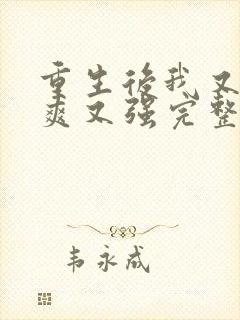 重生後我又
爽又强完整
韦永成